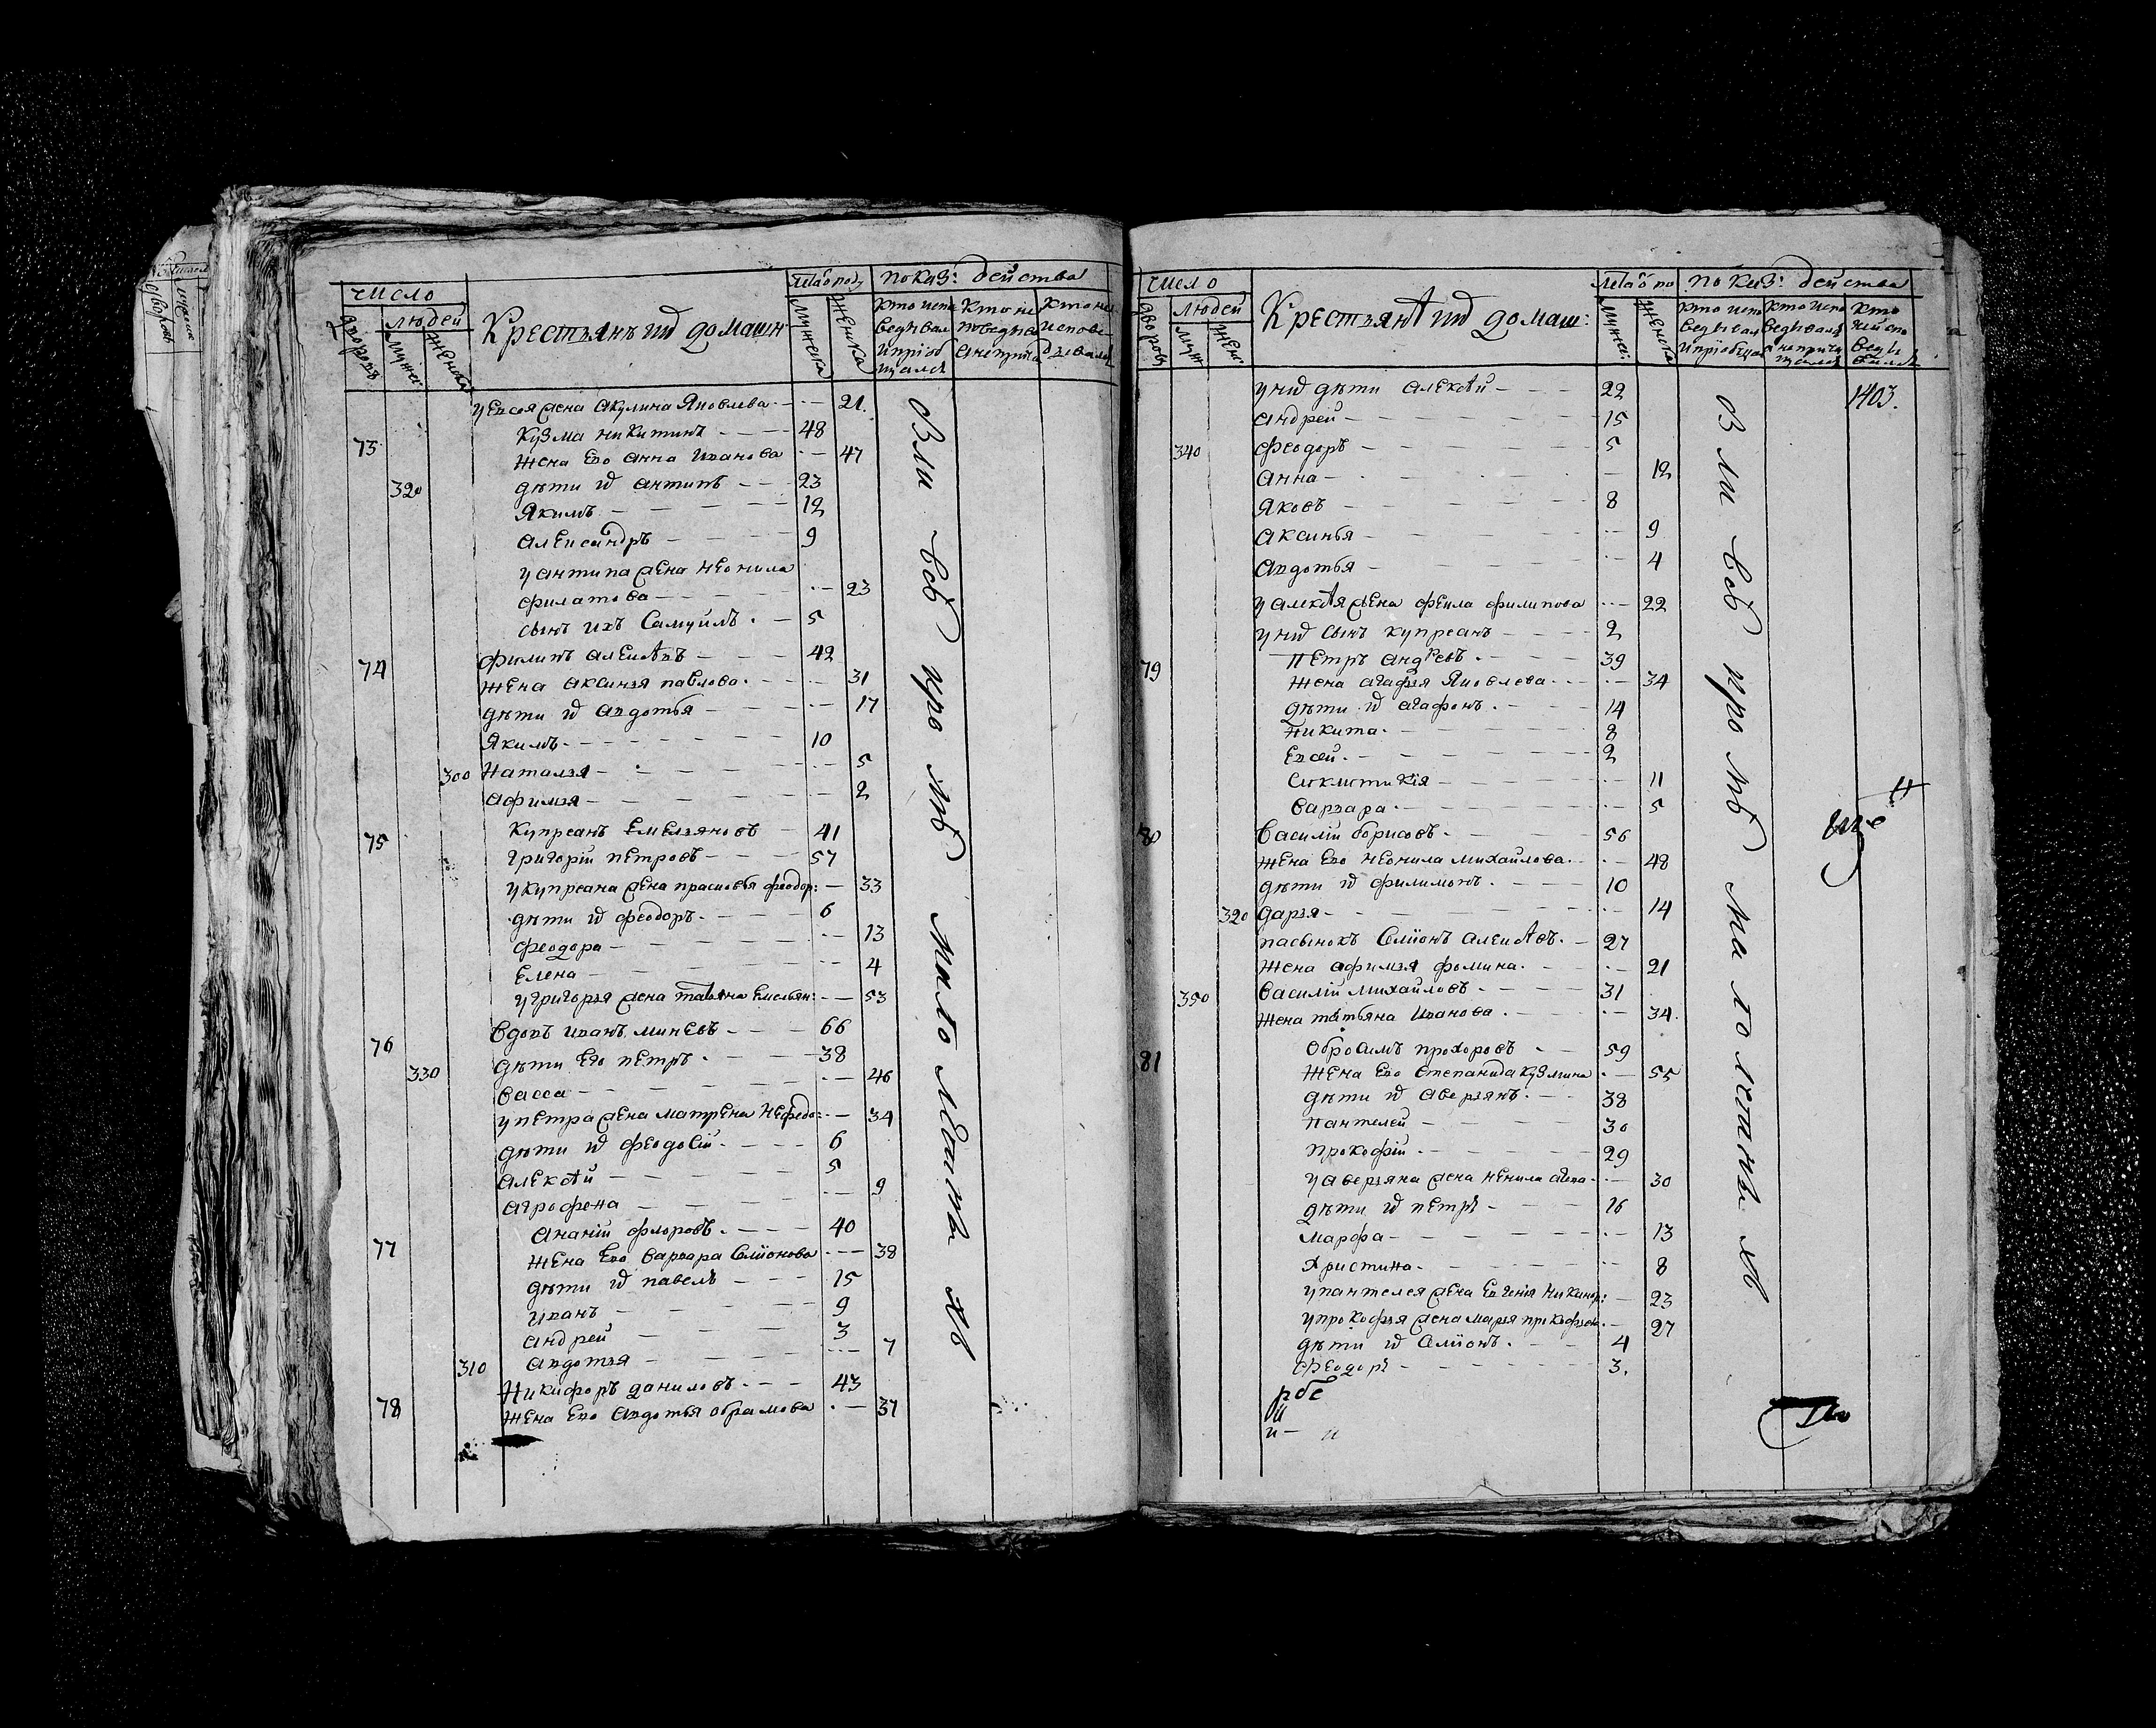 число
людей
дворовъ
мужес:
женска
Крестьянъ ихъ домашн
мужеска
женска
показ: действа
Евсея жена акулина Яковлева 21.
73 Кузма никитинъ 48
жена Его анна Иванова 47
320 дѣти их антипъ 23
Якимъ 12
александръ 9
у антипа жена неонила
филатова 23
сынъ ихъ Самуилъ 5
74 филипъ алексѣвъ 42
жена аксинья павлова 31
дѣти их авдотья 17
Якимъ 10
300 Наталья 5
афимья 2
75 Купреанъ Емельяновъ 41
григорій петровъ 57
у купреана жена прасковья феодор: 33
дѣти их феодоръ 6
феодора 13
Елена 4
у григорья жена татьяна Емельян: 53
76 вдовъ иванъ минеевъ 66
дѣти Его петръ 38
330 васса 46
у петра жена матрена Нефедо: 34
дѣти их феодосій 6
алексѣй 5
агрофена 9
77 ананій флоровъ 40
жена Его варвара Семіонова 38
дѣти их павелъ 15
иванъ 9
андрей 3
310 авдотья 7
78 Никифоръ даниловъ 43
жена Его авдотья абрамова 37
Вли всѣ кромѣ малолетныхъ
число
людей
дворовъ
муж
женс
Крестьянъ ихъ домаш:
мужес:
женска
показ: действа
1403.
у них дѣти алексѣй 22
андрей 15
340 феодоръ 5
анна 12
Яковъ 8
аксинья 9
авдотья 4
у алексѣя жена фекла филипова 22
у них сынъ купреанъ 2
79 Петръ андреевъ 39
жена агафья Яковлева 34
дѣти их агафонъ 14
никита 8
Евсей 2
Синклитикія 11
варвара 5
80 василій борисовъ 56
жена Его неонила михайлова 48
дѣти их филимонъ 10
320 дарья 14
пасынокъ Семіонъ алексѣвъ 27
жена афимья фомина 21
350 василій михайловъ 31
жена татьяна иванова 34.
81 Обросимъ прохоровъ 59
жена Его степанида Кузмина 55
дѣти их аверьянъ 38
пантелей 30
прокофій 29
у аверьяна жена ненила 30
дѣти их петръ 16
марфа 13
христина 8
у пантелея жена Евгенія никанор: 23
у прокофья жена марья прокофьева 27
дѣти их Семіонъ 4
феодоръ 3.
Вли всѣ кромѣ малолетных